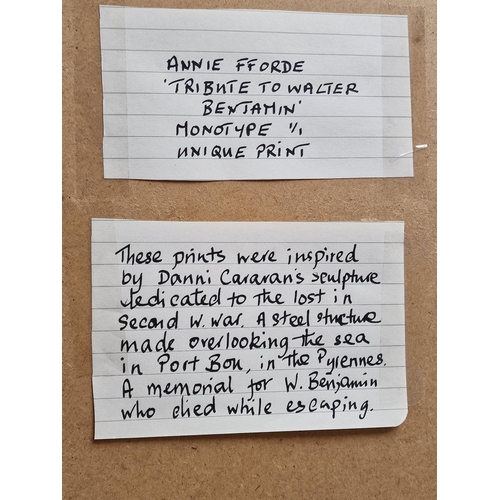 ANNIE FFORDE
'TRIBUTE TO WALTER
BENJAMIN'
MONOTYPE 1/1
UNIQUE PRINT
These prints were inspired
by Danni Cararan's sculpture
dedicated to the lost in
Second W. War. A steel structure
made overlooking the sea
in Port Bou, in the Pyrennes.
A memorial for W. Benjamin
who died while escaping.